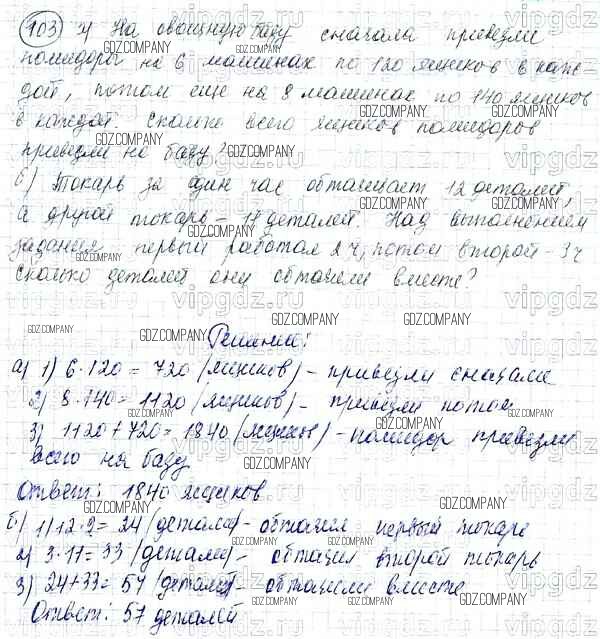 103 а) На овощную базу сначала привезли
помидоры на 6 машинах по 120 ящиков в каж-
дой, потом еще на 8 машинах по 140 ящиков
в каждой. Сколько всего ящиков помидоров
привезли на базу?
б) Токарь за один час обтачивает 12 деталей,
а другой токарь - 11 деталей. Над выполнением
задания первый работал 2 ч, потом второй - 3 ч
сколько деталей они обточили вместе?
Решение:
а) 1) 6·120 = 720 (ящиков) - привезли сначала
2) 8·140 = 1120 (ящиков) - привезли потом
3) 1120+720 = 1840 (ящиков) - помидор привезли
всего на базу
Ответ: 1840 ящиков
б) 1) 12·2 = 24 (детали) - обточил первый токарь
2) 3·11 = 33 (детали) - обточил второй токарь
3) 24+33 = 57 (деталей) - обточили вместе
Ответ: 57 деталей
GDZ.COMPANY
vipgdz.ru